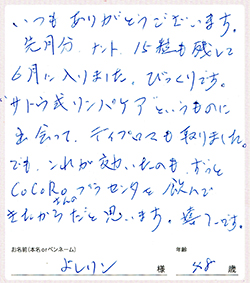 いつもありがとうございます。
先月分、ナント、15粒も残して
6月に入りました。びっくりです。
"サトウ式リンパケア"というものに
出会って、ディプロマも取りました。
でも、これが効いたのも、ずっと
CoCoRoプラセンタを飲んで
きたからさんのだと思います。喜んでです。
お名前(本名orペンネーム) 年齢
よしリン 様 48 歳